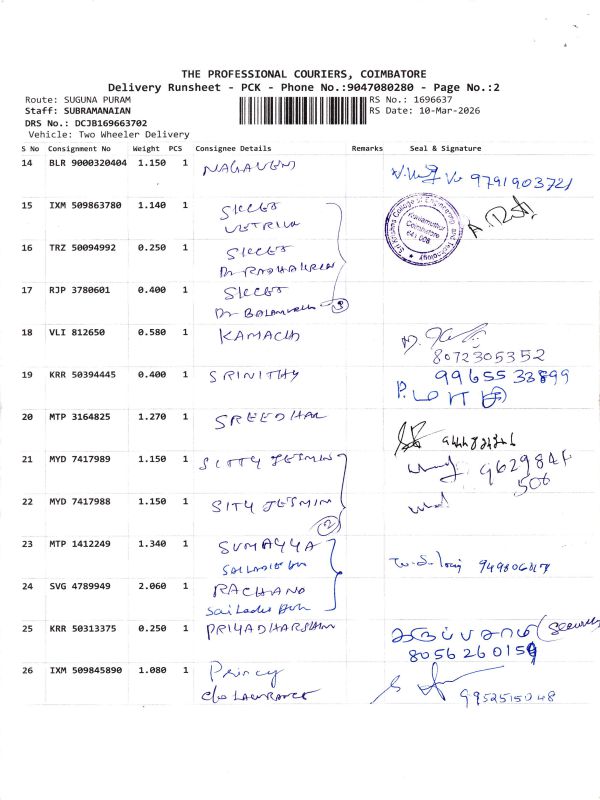 THE PROFESSIONAL COURIERS, COIMBATORE
Delivery Runsheet - PCK - Phone No.:9047080280 - Page No.:2
Route: SUGUNA PURAM
RS No.: 1696637
Staff: SUBRAMANAIAN
RS Date: 10-Mar-2026
DRS No.: DCJB169663702
Vehicle: Two Wheeler Delivery
S No Consignment No Weight PCS Consignee Details Remarks Seal & Signature
14 BLR 9000320404 1.150 1 NAGAVENI
9791903721
15 IXM 509863780 1.140 1 SKCET
Sri Krishna College of Engineering and Technology
Kuniamuthur
Coimbatore
641 008
16 TRZ 50094992 0.250 1 SKCET
17 RJP 3780601 0.400 1 SKCET
3
18 VLI 812650 0.580 1 KAMACHI
8072305352
19 KRR 50394445 0.400 1 SRINITHY
9965533899
20 MTP 3164825 1.270 1 SREEDHAR
21 MYD 7417989 1.150 1 SITTY JESMIN
506
22 MYD 7417988 1.150 1 SITY JESMIN
2
23 MTP 1412249 1.340 1 SUMAYYA
24 SVG 4789949 2.060 1 RACHANA
25 KRR 50313375 0.250 1 PRIYADHARSHINI
கருப்பசாமி (Security
8056260159
26 IXM 509845890 1.080 1 Princy
c/o LAWRANCE
9952515048